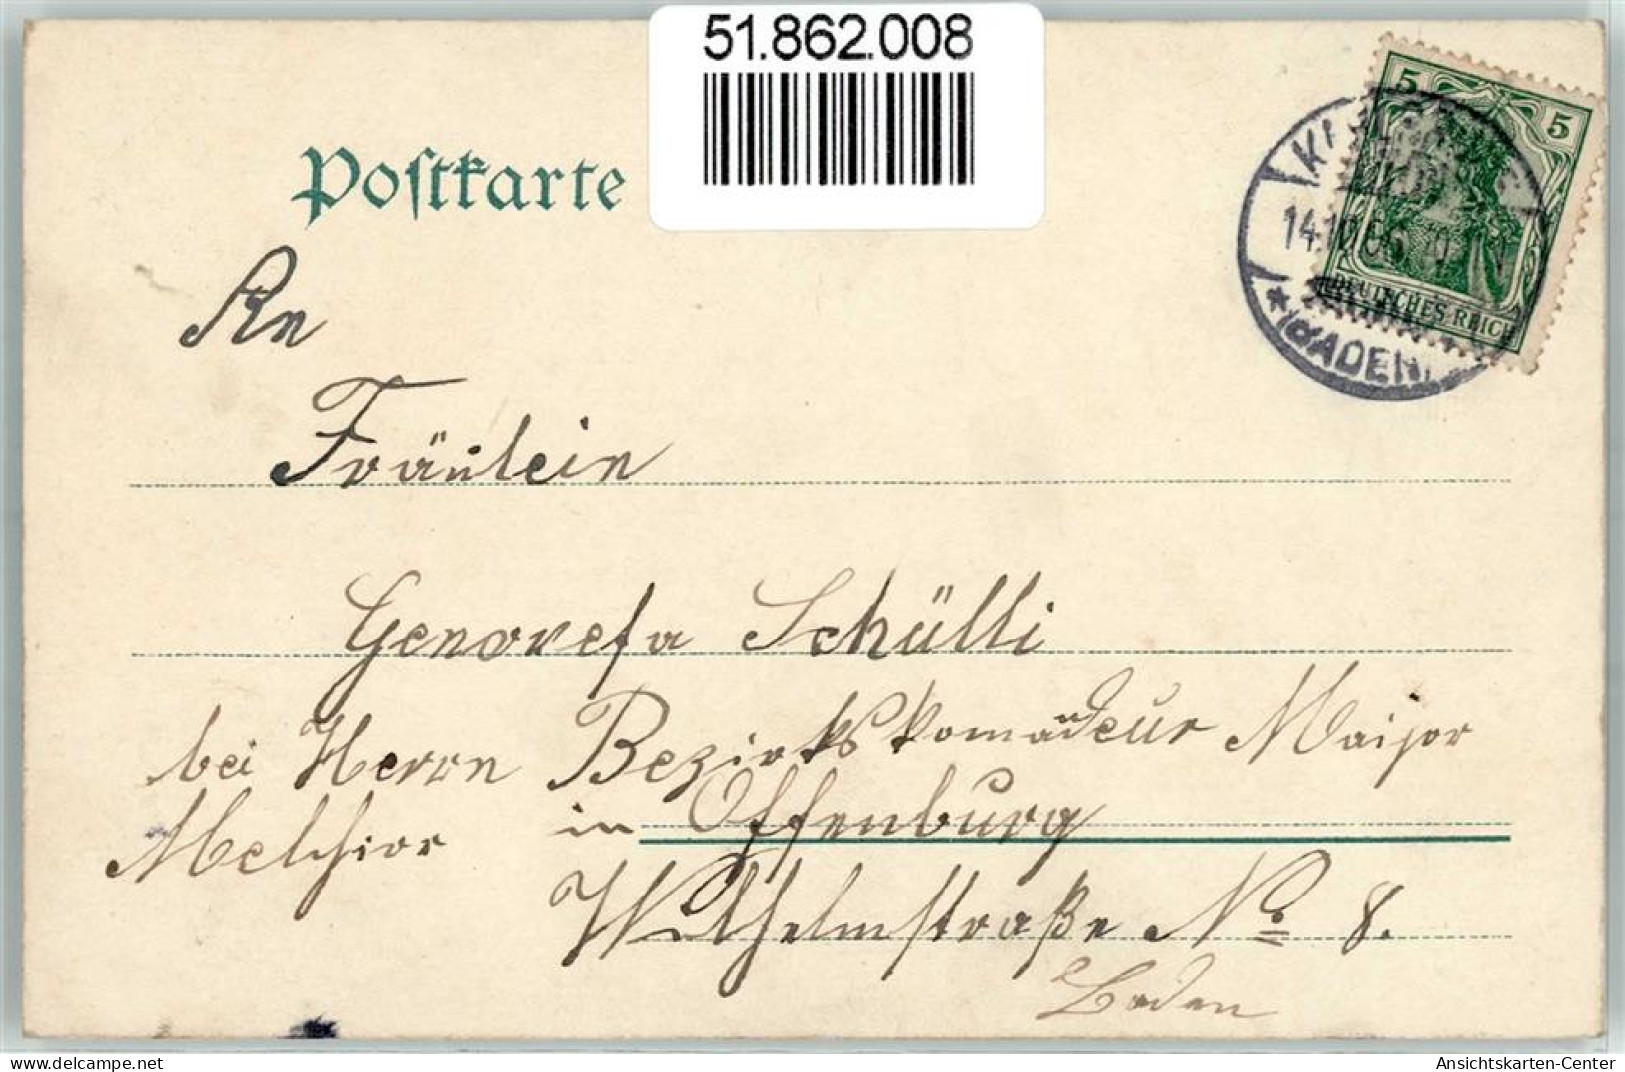 51.862.008
Postkarte
5 5
14.10.06.
DEUTSCHES REICH
* (BADEN)
An
Fräulein
Genovefa Schülli
bei Herrn Bezirkskomandeur Maijor
Melchior in Offenburg
Wilhelmstraße No 8.
Baden
delcampe.net
Ansichtskarten-Center